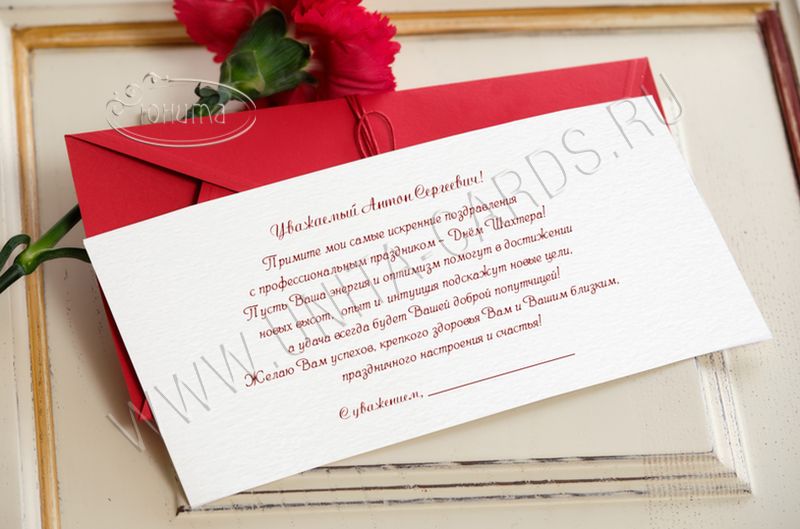 Юнита
Уважаемый Антон Сергеевич!
Примите мои самые искренние поздравления
с профессиональным праздником – Днём Шахтера!
Пусть Ваша энергия и оптимизм помогут в достижении
новых высот, опыт и интуиция подскажут новые цели,
а удача всегда будет Вашей доброй попутчицей!
Желаю Вам успехов, крепкого здоровья Вам и Вашим близким,
праздничного настроения и счастья!
С уважением, ____________________
WWW.UNITA-CARDS.RU